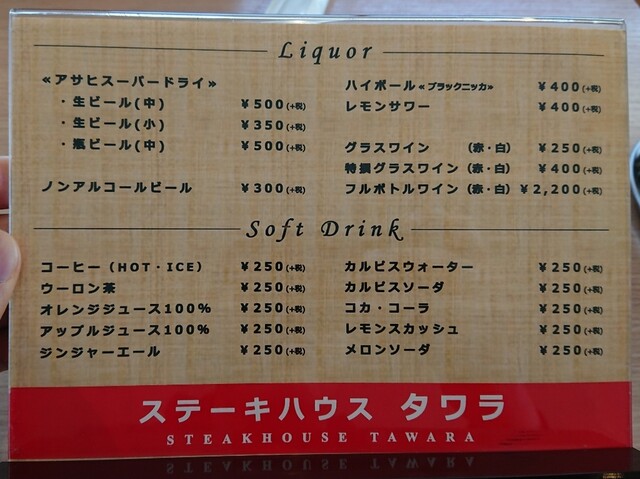 Liquor
≪アサヒスーパードライ≫
・生ビール(中) ¥500(+税)
・生ビール(小) ¥350(+税)
・瓶ビール(中) ¥500(+税)
ノンアルコールビール ¥300(+税)
ハイボール≪ブラックニッカ≫ ¥400(+税)
レモンサワー ¥400(+税)
グラスワイン (赤・白) ¥250(+税)
特撰グラスワイン(赤・白) ¥400(+税)
フルボトルワイン(赤・白) ¥2,200(+税)
Soft Drink
コーヒー(HOT・ICE) ¥250(+税)
ウーロン茶 ¥250(+税)
オレンジジュース100% ¥250(+税)
アップルジュース100% ¥250(+税)
ジンジャーエール ¥250(+税)
カルピスウォーター ¥250(+税)
カルピスソーダ ¥250(+税)
コカ・コーラ ¥250(+税)
レモンスカッシュ ¥250(+税)
メロンソーダ ¥250(+税)
ステーキハウス タワラ
STEAKHOUSE TAWARA